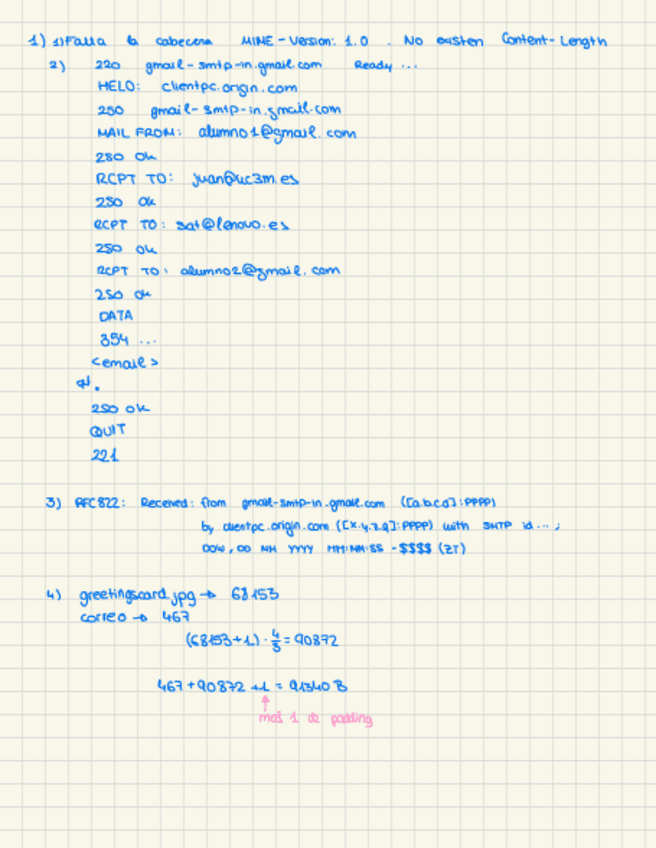 1) 1) Falta la cabecera MIME-Version: 1.0 . No existen Content-Length
2) 220 gmail-smtp-in.gmail.com Ready ...
HELO: clientpc.origin.com
250 gmail-smtp-in.gmail.com
MAIL FROM: alumno1@gmail.com
250 ok
RCPT TO: juan@uc3m.es
250 ok
RCPT TO: sat@lenovo.es
250 ok
RCPT TO: alumno2@gmail.com
250 ok
DATA
354 ...
<email>
.
250 ok
QUIT
221
3) RFC822: Received: from gmail-smtp-in.gmail.com ([a.b.c.d]:PPPP)
by clientpc.origin.com ([x.y.z.q]:PPPP) with SMTP id ... ;
DDW, DD NM YYYY HH:MM:SS -$$$$ (ZT)
4) greetingscard.jpg → 68153
correo → 467
(68153+1) · 4/3 = 90872
467 + 90872 + 1 = 91340 B
mas 1 de padding